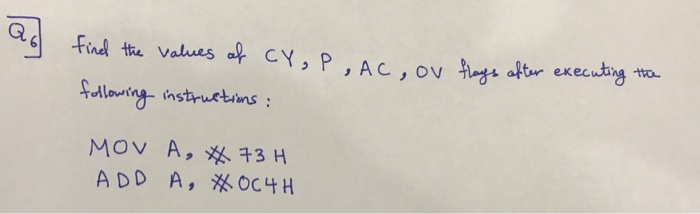 Q6
Find the values of CY, P, AC, OV flags after executing the
following instructions :
MOV A, # 73 H
ADD A, # 0C4H